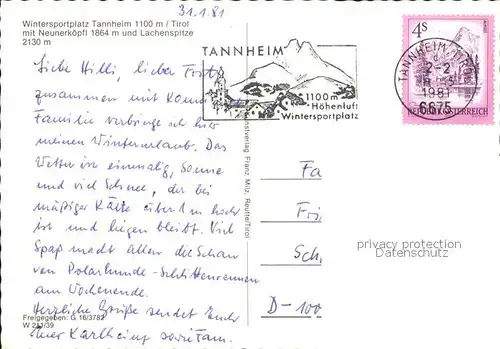 31.1.81
Wintersportplatz Tannheim 1100 m / Tirol
mit Neunerköpfl 1864 m und Lachenspitze
2130 m
TANNHEIM
1100 m
Höhenluft
Wintersportplatz
4S
TANNHEIM, TIROL
2.-2.
1981
6675
REPUBLIK ÖSTERREICH
Liebe Hilli, lieber Fritz,
zusammen mit
Familie verbringe ich hier
meinen Winterurlaub. Das
Wetter ist einmalig, Sonne
und viel Schnee, der bei
mäßiger Kälte über 1 m hoch
ist und liegen bleibt. Viel
Spaß macht allen die Schau
von Polarhunde-Schlittenrennen
am Wochenende.
Herzliche Grüße sendet Euch
Euer Karlheinz
Kunstverlag Franz Milz, Reutte/Tirol
Fa
Fri
Sch
D-100
privacy protection
Datenschutz
Freigegeben: G 16/3782
W 211/39